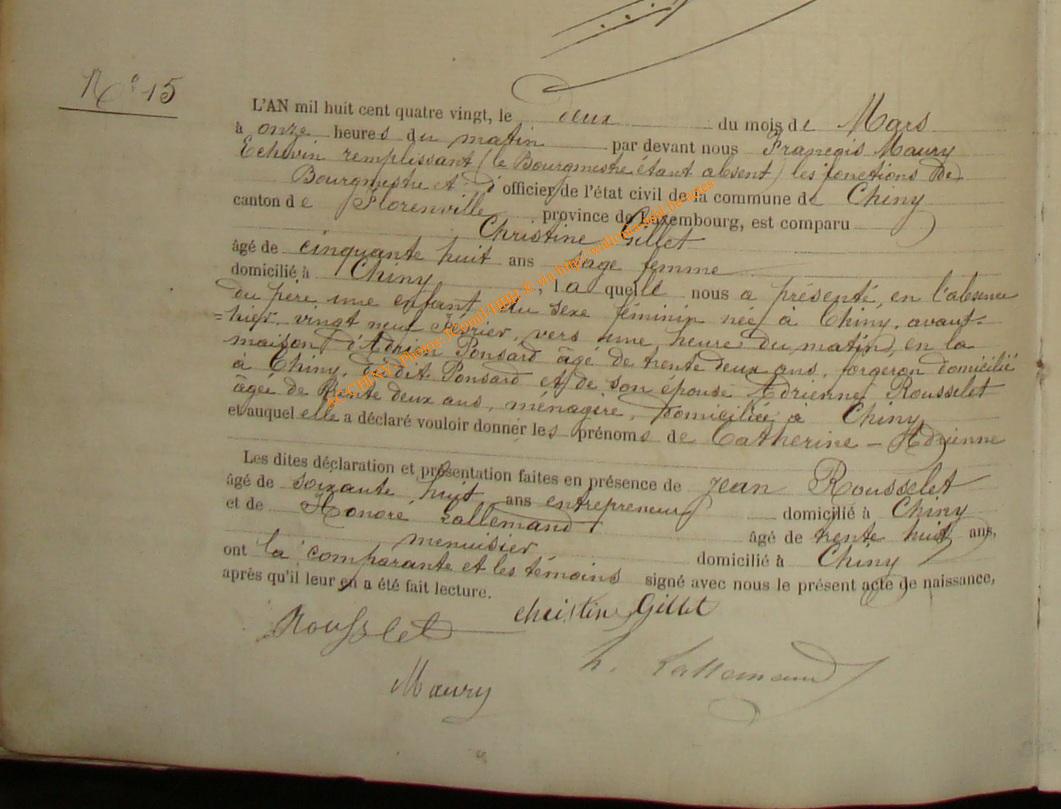 Nº 15
L'AN mil huit cent quatre vingt, le deux du mois de Mars
à onze heures du matin par devant nous François Maury
Echevin remplissant (le Bourgmestre étant absent) les fonctions de
Bourgmestre et d'officier de l'état civil de la commune de Chiny
canton de Florenville province de Luxembourg, est comparu
Christine Gillet
âgé de cinquante huit ans sage femme
domicilié à Chiny, laquelle nous a présenté, en l'absence
du père, une enfant du sexe féminin née à Chiny, avant-
=hier, vingt neuf Février, vers une heure du matin, en la
maison d'Adrien Ponsard âgé de trente deux ans, forgeron domicilié
à Chiny, dudit Ponsard et de son épouse Adrienne Rousselet
âgée de trente deux ans, ménagère, domiciliée à Chiny
et auquel elle a déclaré vouloir donner les prénoms de Catherine – Adrienne
Les dites déclaration et présentation faites en présence de Jean Rousselet
âgé de soixante huit ans entrepreneur domicilié à Chiny
et de Honoré Lallemand âgé de trente huit ans,
menuisier domicilié à Chiny
ont la comparante et les témoins signé avec nous le présent acte de naissance,
après qu'il leur en a été fait lecture.
Rousselet Christine Gillet
h. Lallemand
Maury